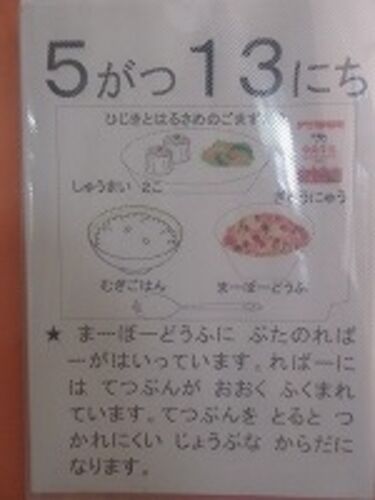 5がつ13にち
ひじきとはるさめのごまず
しゅうまい 2こ
ぎゅうにゅう
むぎごはん
まーぼーどうふ
★ まーぼーどうふに ぶたのれば
ーがはいっています。ればーに
は てつぶんが おおく ふくまれ
ています。てつぶんを とると つ
かれにくい じょうぶな からだに
なります。